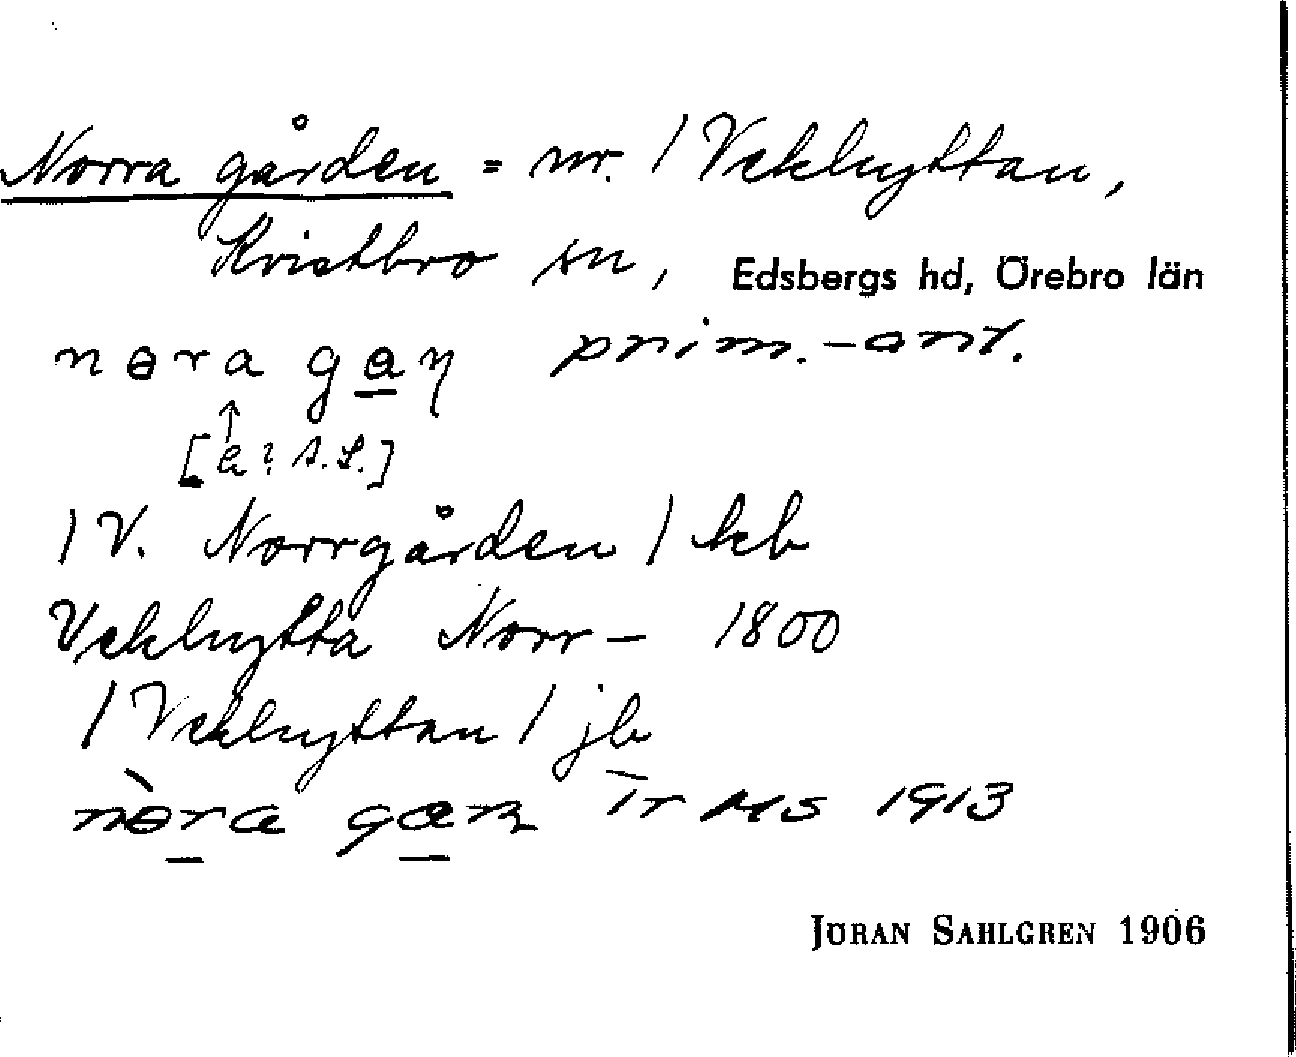 Norra gården = nr. 1 Vekhyttan,
Kvistbro sn, Edsbergs hd, Örebro län
nɵra ga̲ɳ prim.-ant.
↑
[a? A.S.]
1 V. Norrgården 1 kb
Vekhytta Norr- 1800
1 Vekhyttan 1 jb
nɵ̲̀ra ga̲ɳ Ïr MS 1913
JÖRAN SAHLGREN 1906